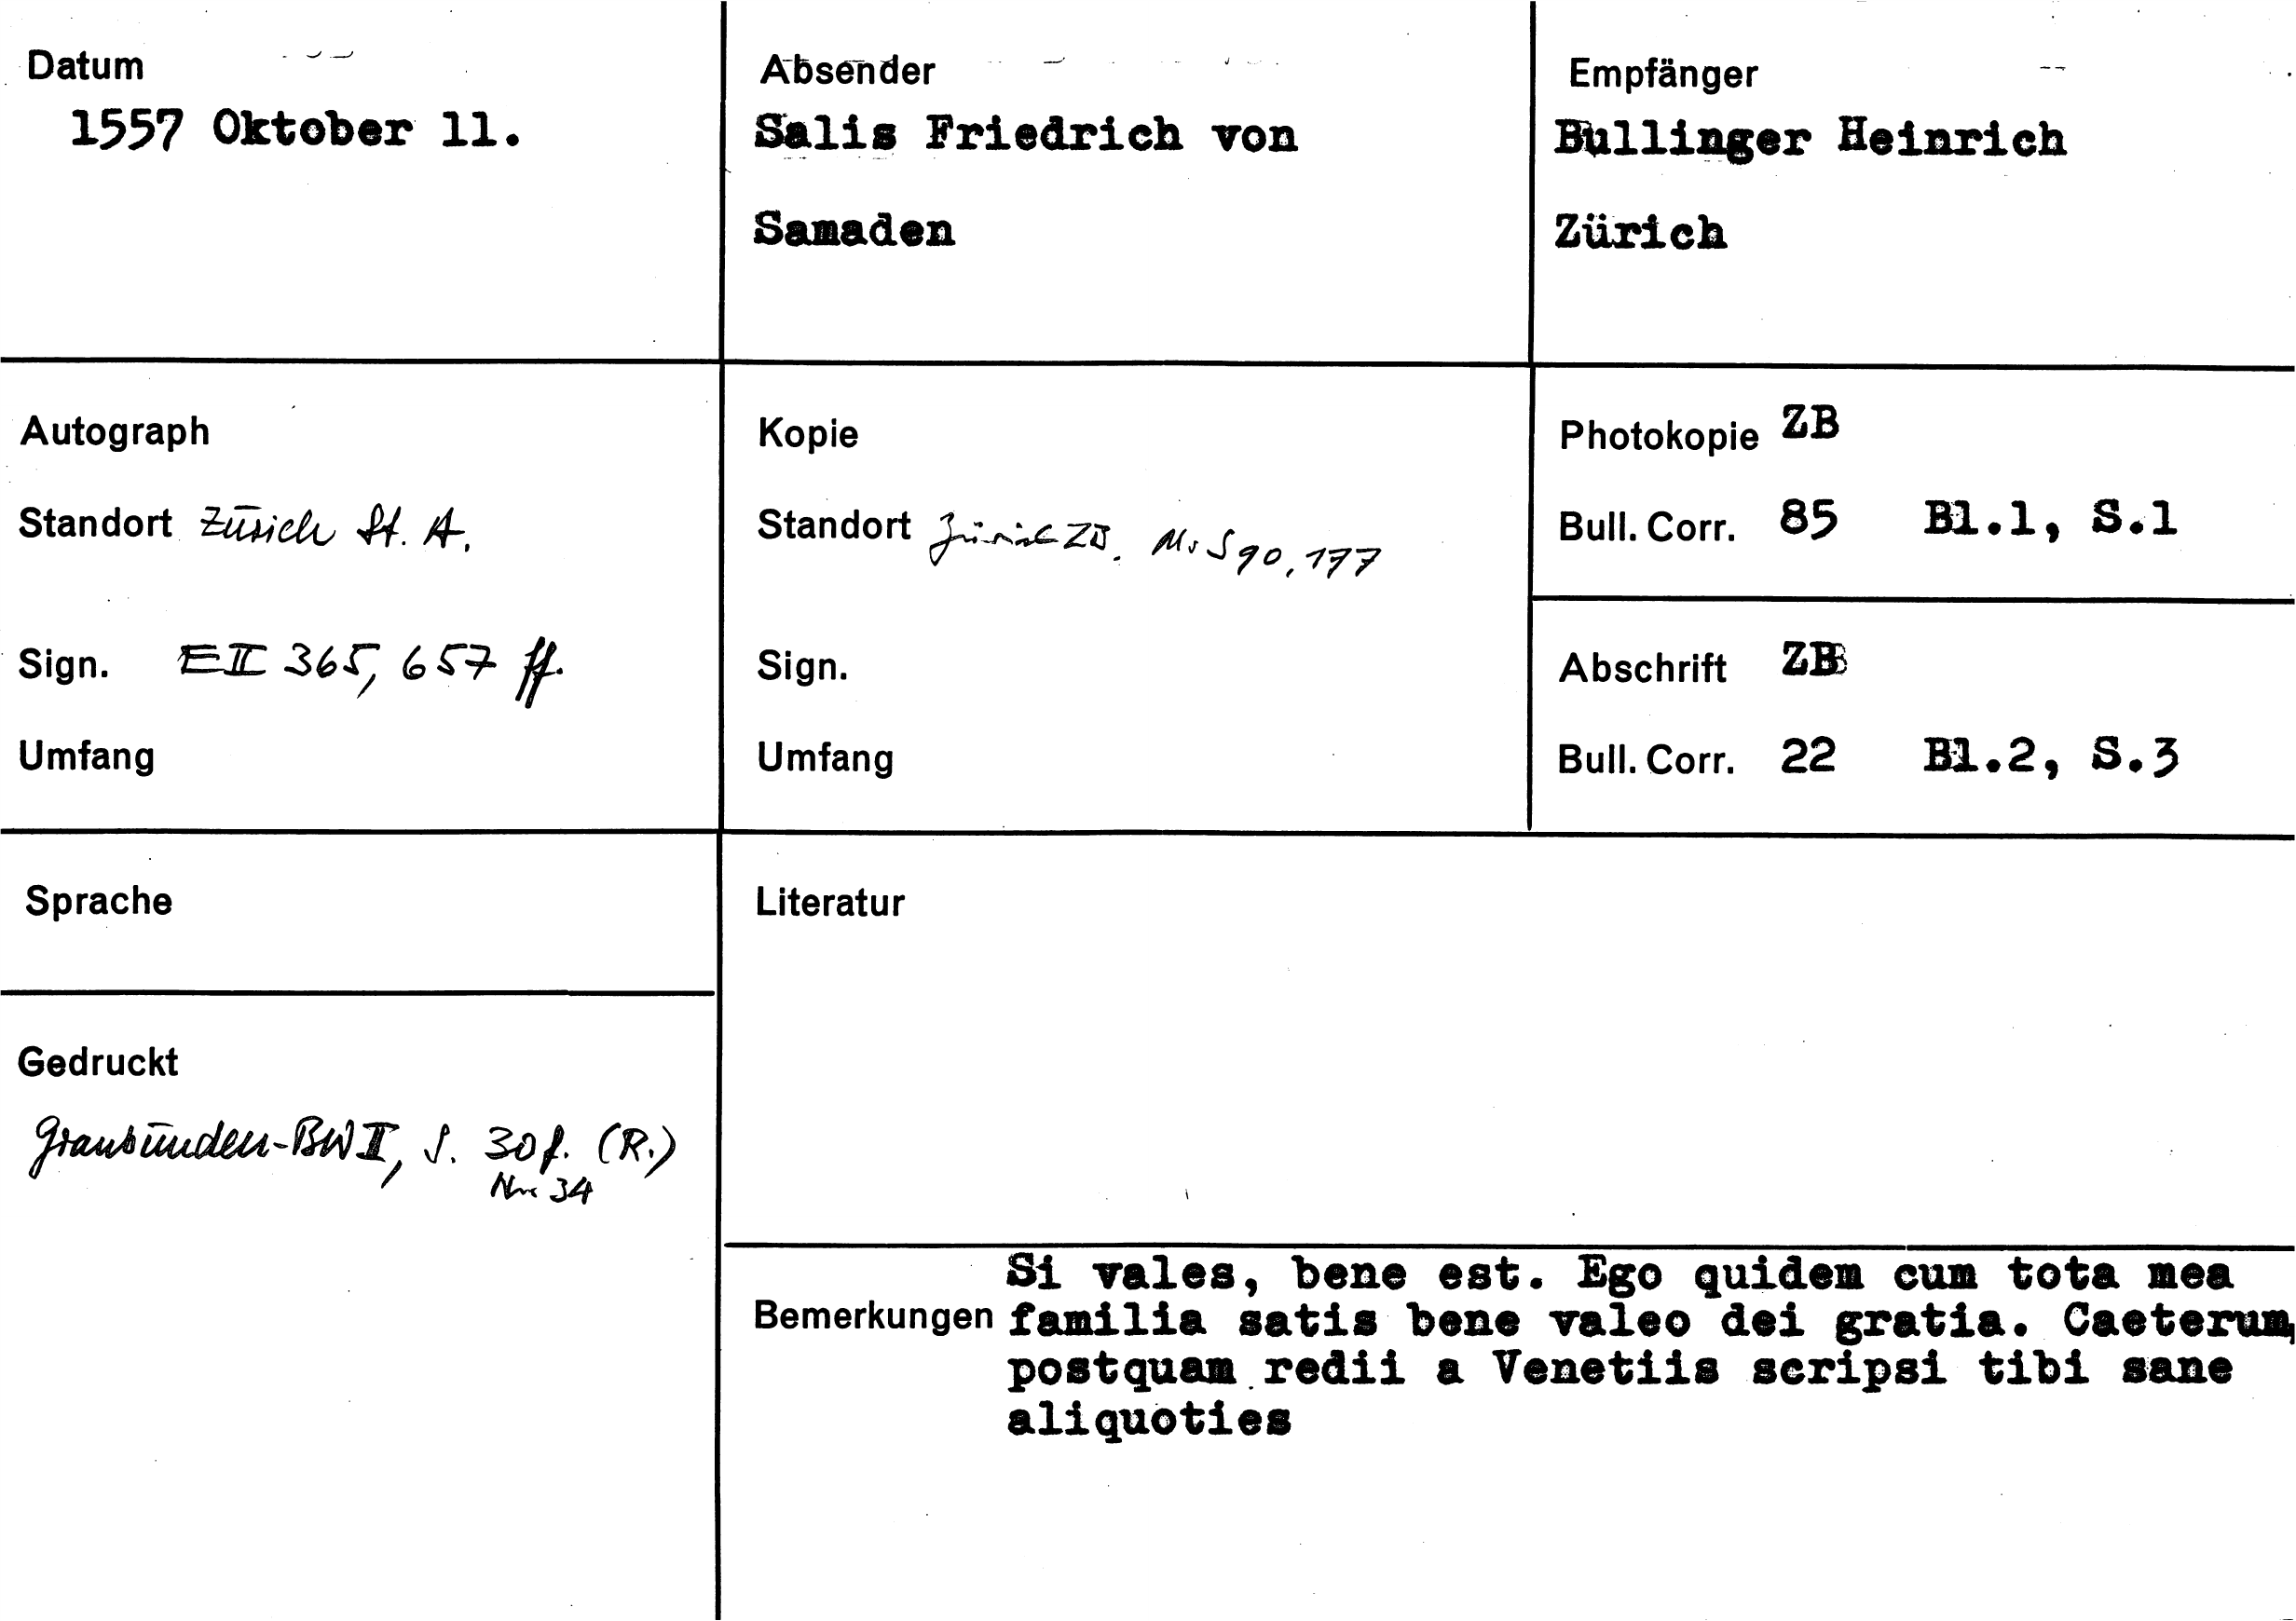 Datum
1557 Oktober 11.
Absender
Salis Friedrich von
Samaden
Empfänger
Bullinger Heinrich
Zürich
Autograph
Standort Zürich St. A.
Sign. E II 365, 657 ff.
Umfang
Kopie
Standort Zürich ZB. Ms S 90, 177
Sign.
Umfang
Photokopie ZB
Bull. Corr. 85 Bl.1, S.1
Abschrift ZB
Bull. Corr. 22 Bl.2, S.3
Sprache
Gedruckt
Graubünden-BW II, S. 30 f. (R.)
Nr 34
Literatur
Bemerkungen
Si vales, bene est. Ego quidem cum tota mea
familia satis bene valeo dei gratia. Caeterum,
postquam redii a Venetiis scripsi tibi sane
aliquoties